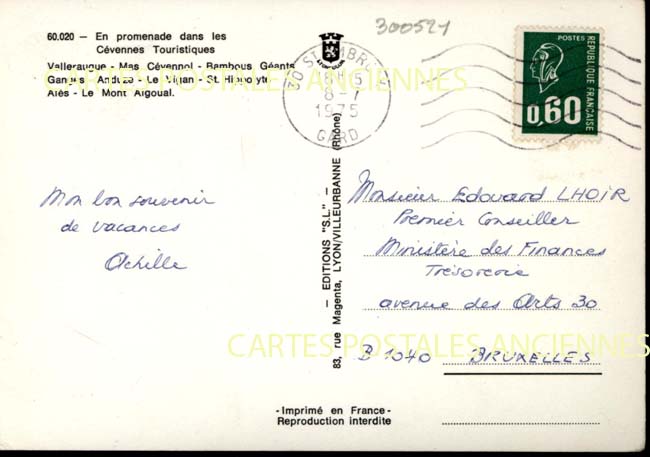 60.020 - En promenade dans les
Cévennes Touristiques
Valleraugue - Mas Cévennol - Bambous Géants
Ganges - Anduze - Le Vigan - St. Hippolyte
Alès - Le Mont Aigoual.
300521
30 ST AMBROIX
18H15
8-7
1975
GARD
POSTES
REPUBLIQUE FRANÇAISE
0,60
CARTES POSTALES ANCIENNES
Mon bon souvenir
de vacances
Achille
- EDITIONS "S.L." -
83, rue Magenta, LYON/VILLEURBANNE (Rhône)
Monsieur Edouard LHOIR
Premier Conseiller
Ministère des Finances
Trésorerie
avenue des Arts 30
B 1040 BRUXELLES
CARTES POSTALES ANCIENNES
- Imprimé en France -
Reproduction interdite